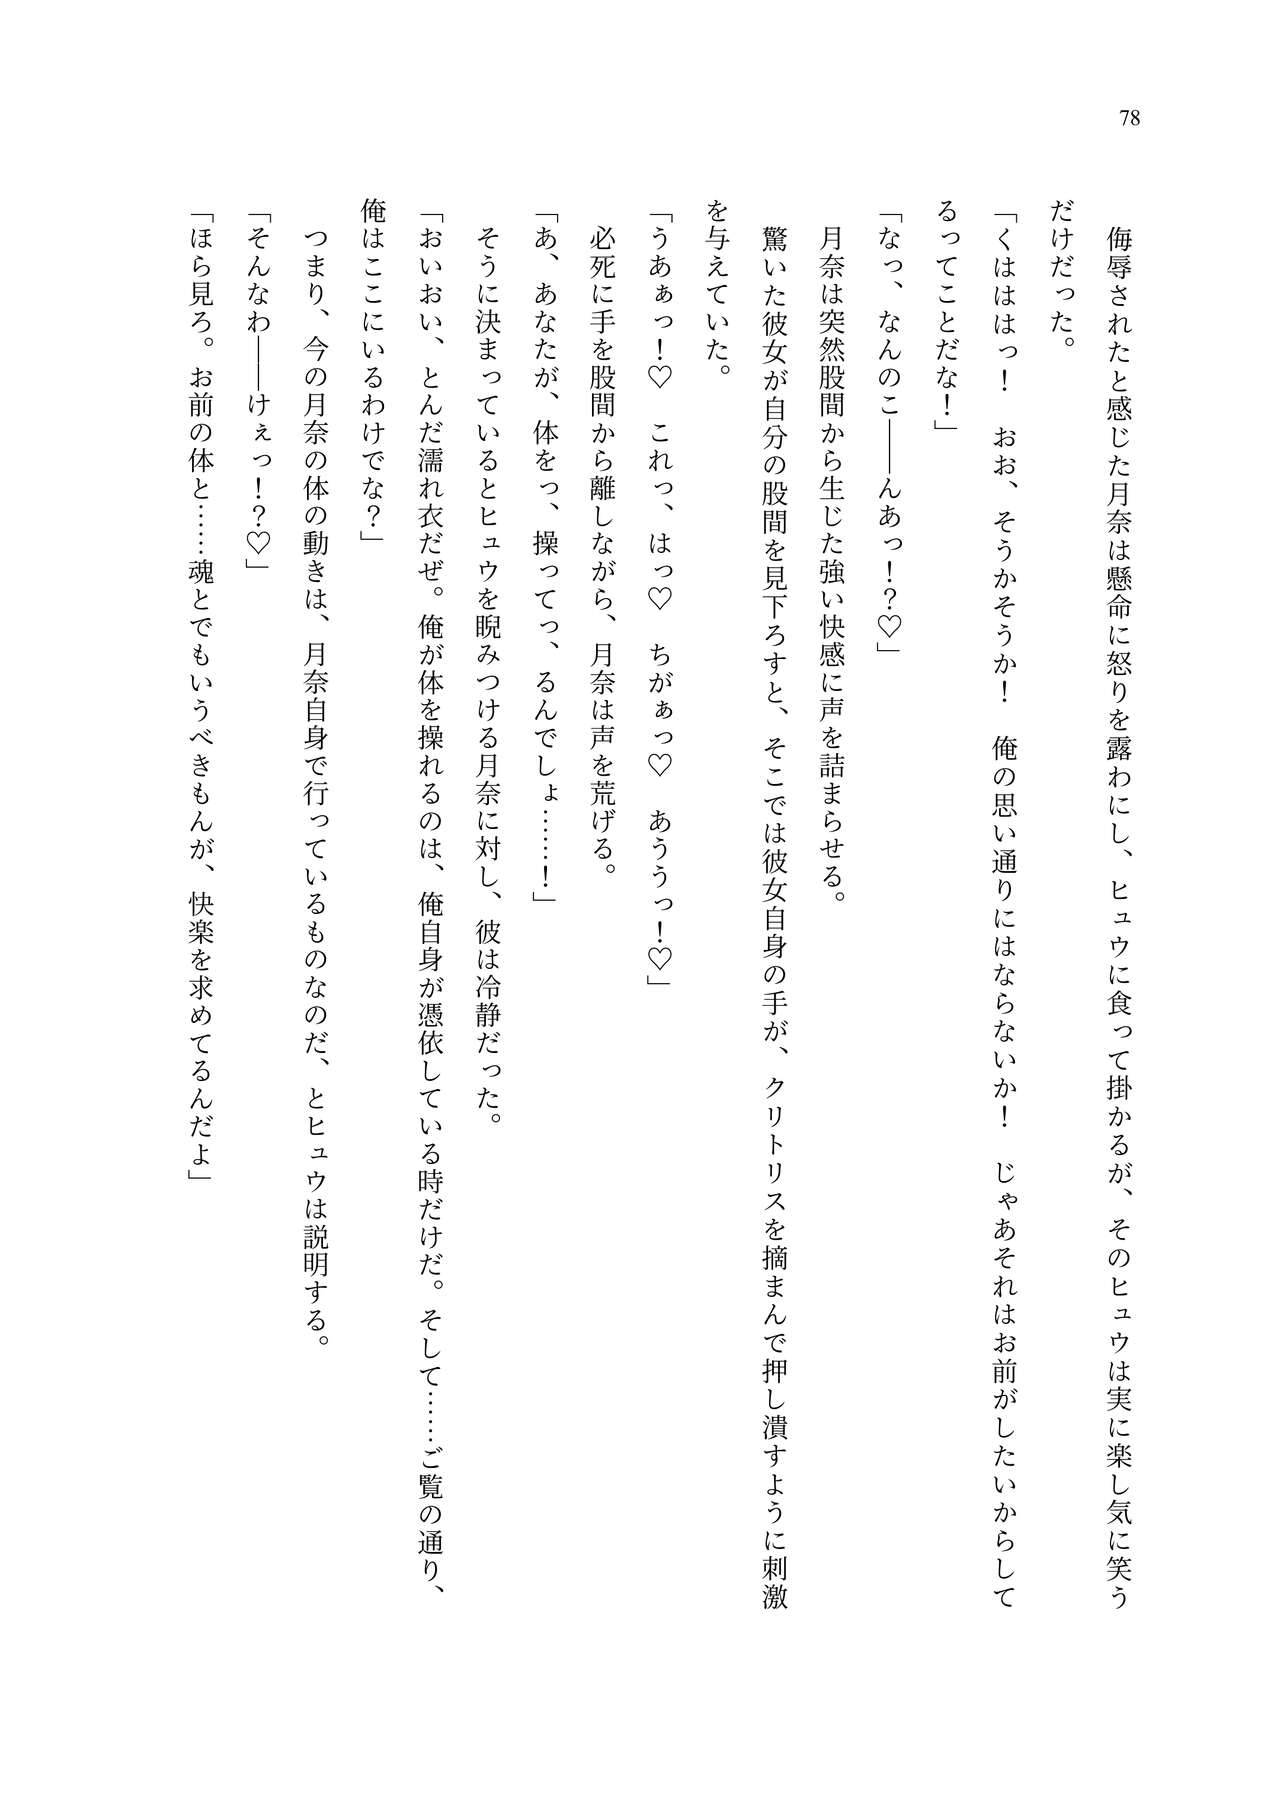 78
侮辱されたと感じた月奈は懸命に怒りを露わにし、ヒュウに食って掛かるが、そのヒュウは実に楽し気に笑う
だけだった。
「くははは っ！　おお、そうかそうか！　俺の思い通りにはならないか！　じゃあそれはお前がしたいからして
るってことだな！」
「なっ、なんのこ――んあっ！？♡」
月奈は突然股間から生じた強い快感に声を詰まらせる。
驚いた彼女が自分の股間を見下ろすと、そこでは彼女自身の手が、クリトリスを摘まんで押し潰すように刺激
を与えていた。
「うあぁっ！♡　これっ、はっ♡　ちがぁっ♡　あううっ！♡」
必死に手を股間から離しながら、月奈は声を荒げる。
「あ、あなたが、体をっ、操ってっ、るんでしょ……！」
そうに決まっているとヒュウを睨みつける月奈に対し、彼は冷静だった。
「おいおい、とんだ濡れ衣だぜ。俺が体を操れるのは、俺自身が憑依している時だけだ。そして……ご覧の通り、
俺はここにいるわけでな？」
つまり、今の月奈の体の動きは、月奈自身で行っているものなのだ、とヒュウは説明する。
「そんなわ――けぇっ！？♡」
「ほら見ろ。お前の体と……魂とでもいうべきもんが、快楽を求めてるんだよ」